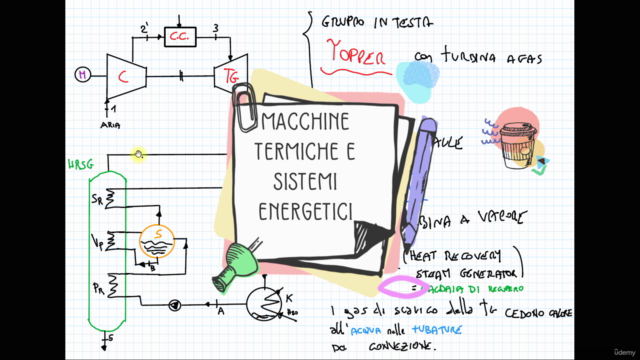 GRUPPO IN TESTA
TOPPER con TURBINA A GAS
2'
C.C.
3
M
C
TG
1
ARIA
MACCHINE
TERMICHE E
SISTEMI
ENERGETICI
HRSG
SR
S
VP
B
PR
A
K
H20
5
BINA A VAPORE
HEAT RECOVERY
STEAM GENERATOR
= CALDAIA DI RECUPERO
I gas di scarico della TG CEDONO CALORE
all'ACQUA nelle TUBATURE
per CONVEZIONE.
ûdemy